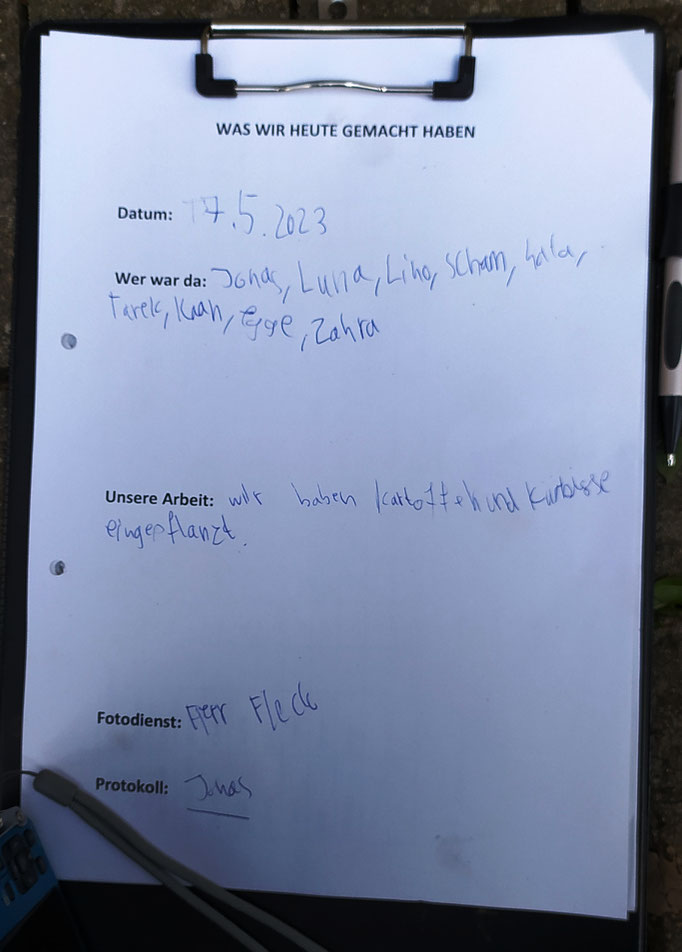 WAS WIR HEUTE GEMACHT HABEN
Datum: 17.5.2023
Wer war da: Jonas, Luna, Lino, Scham, hala,
Tarek, Kaan, Ege, Zahra
Unsere Arbeit: wir haben Kartoffeln und Kürbisse
eingepflanzt.
Fotodienst: Herr Fleck
Protokoll: Jonas